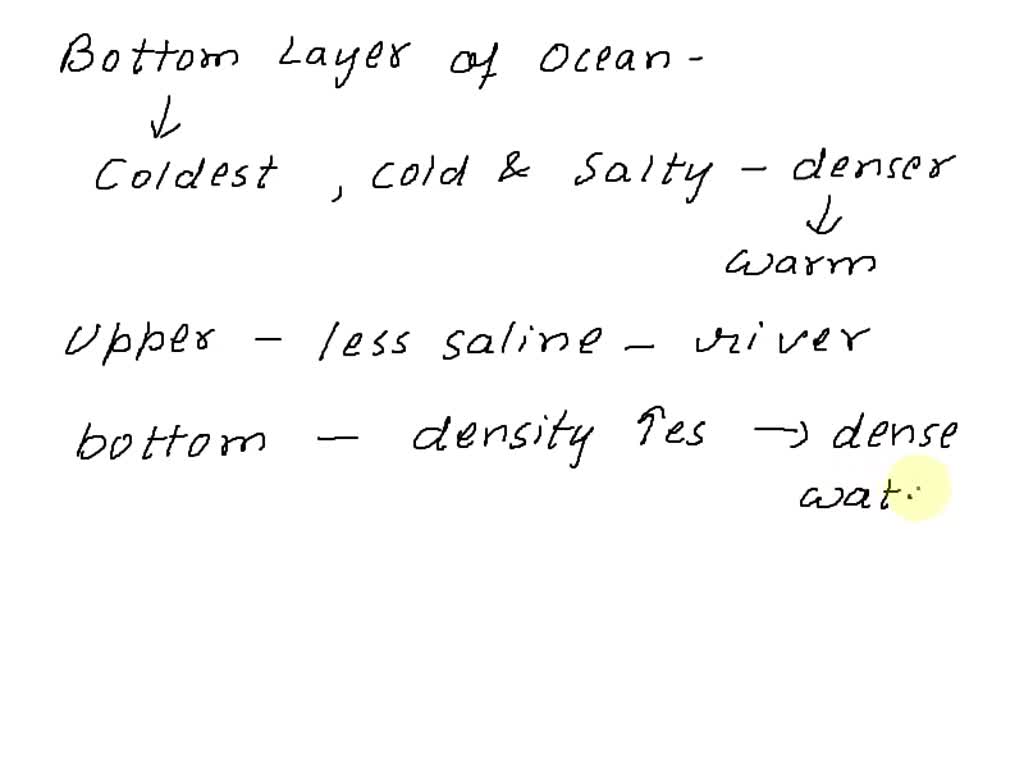 Bottom Layer of Ocean -
↓
Coldest, cold & salty - denser
↓
warm
Upper - less saline - river
bottom - density ↑es → dense
wat